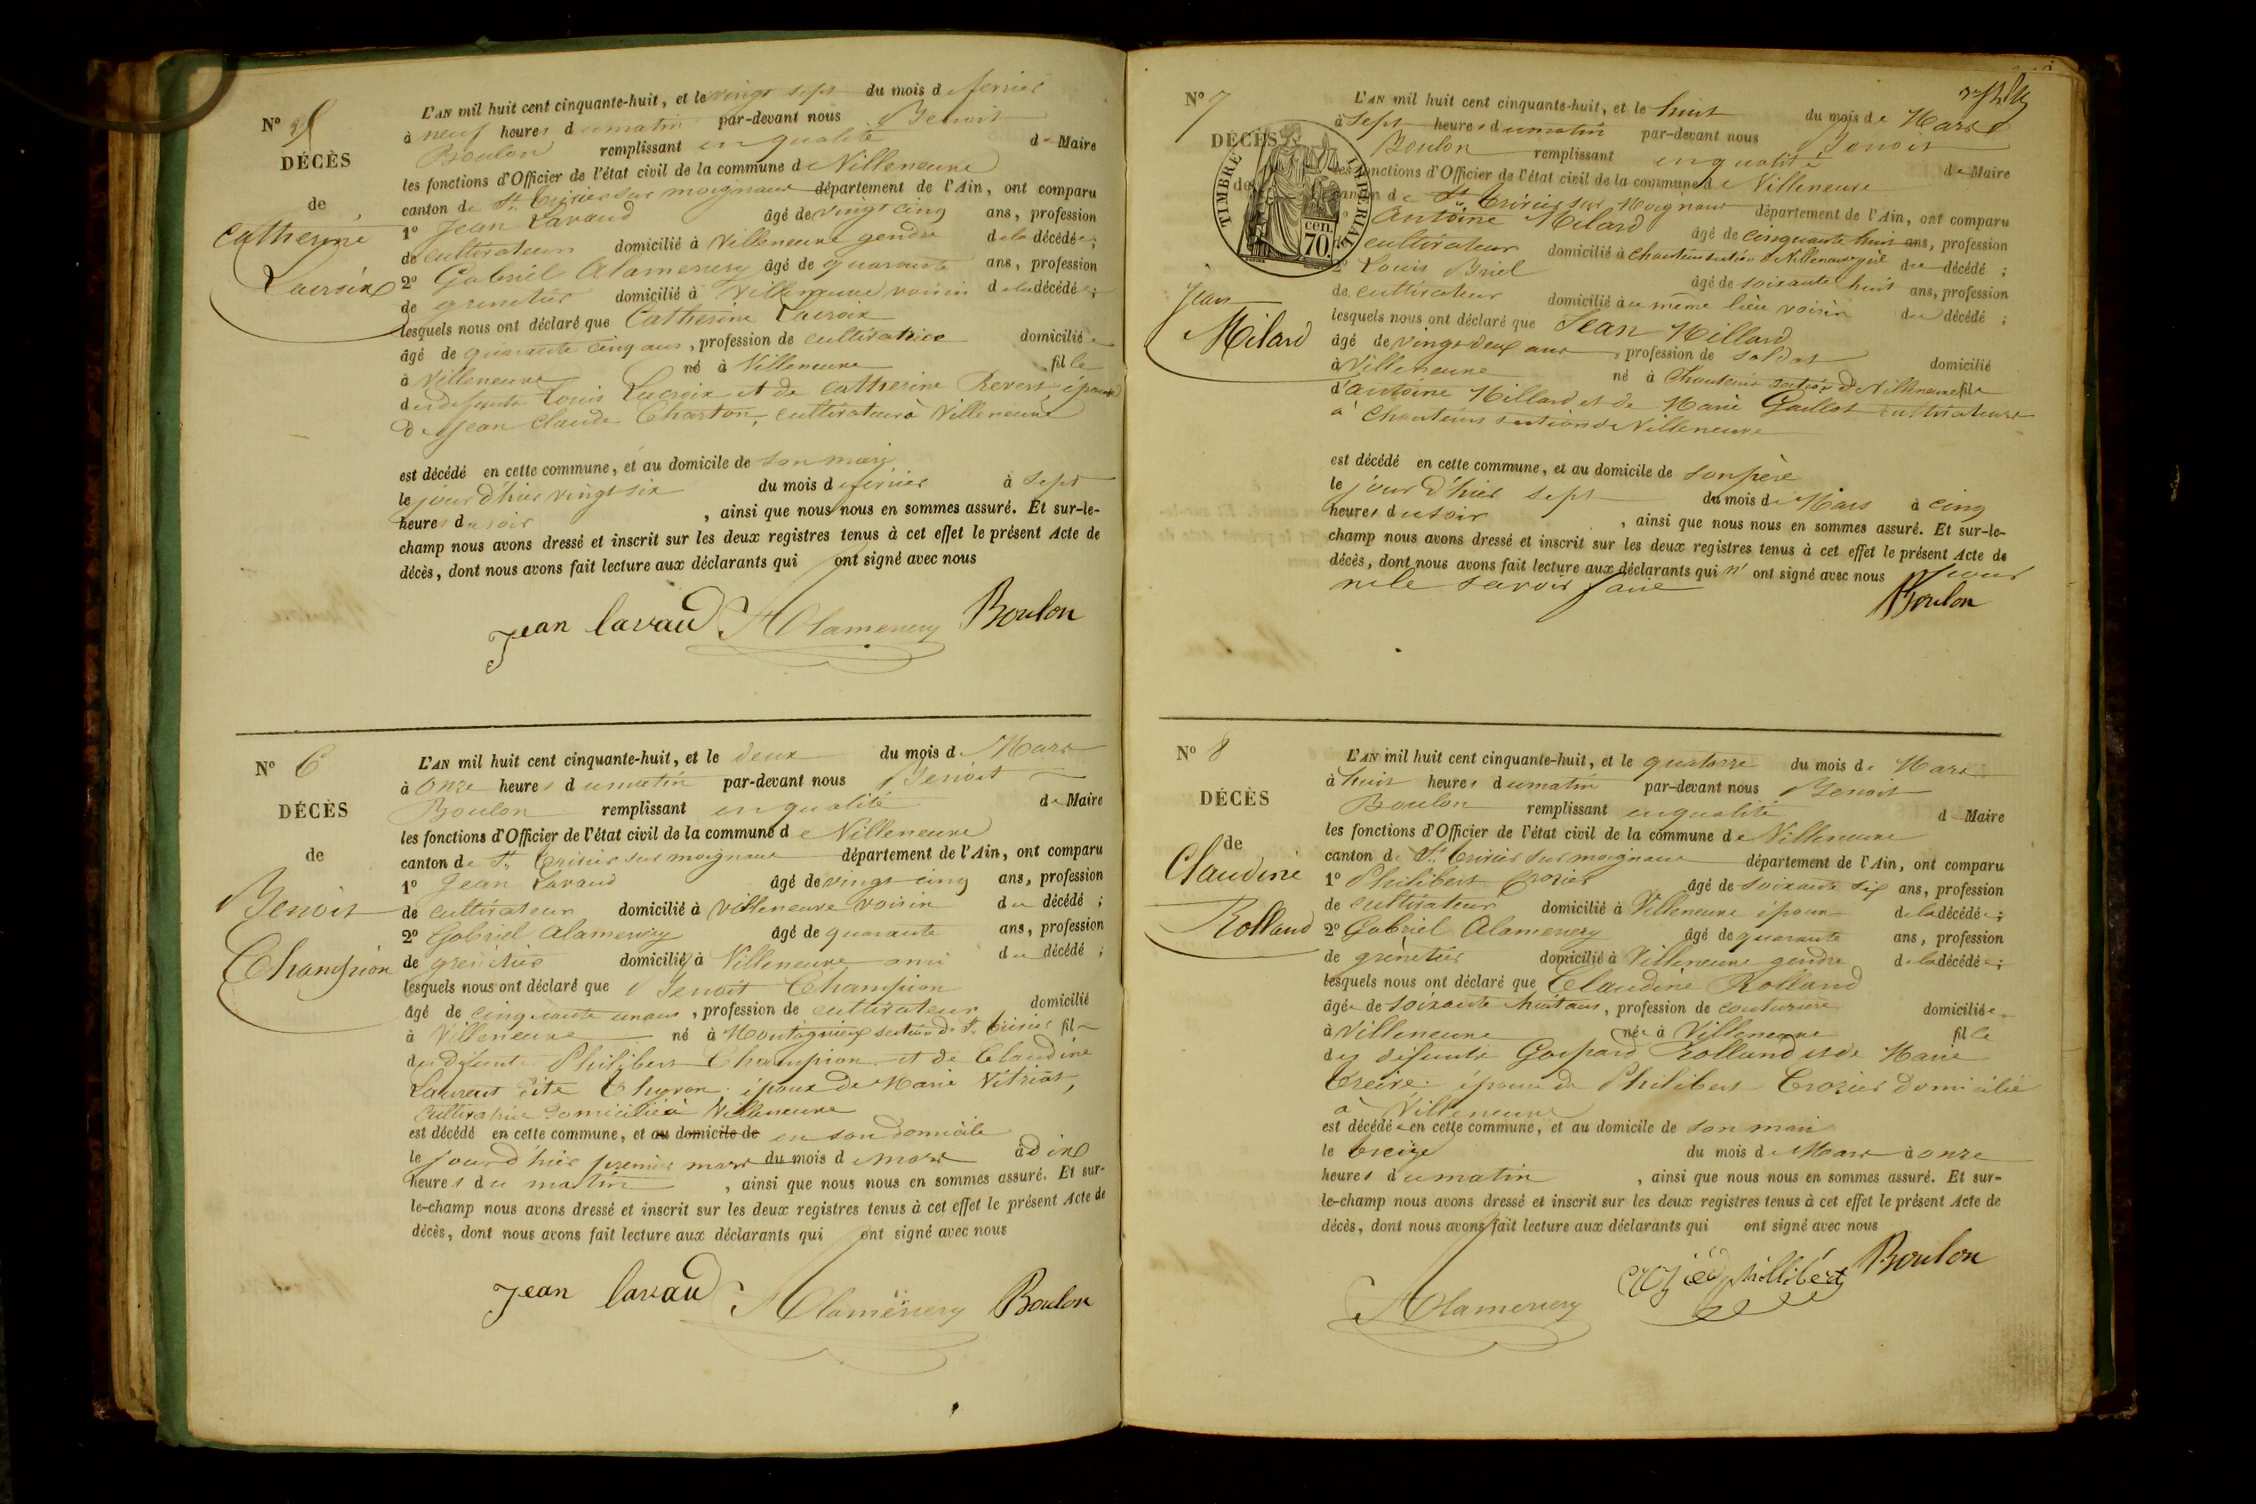 N° 5
DÉCÈS
de
Catherine
Lacroix
L'AN mil huit cent cinquante-huit, et le vingt sept du mois d fevrier
à neuf heures du matin par-devant nous Benoit
Boulon remplissant en qualité de Maire
les fonctions d'Officier de l'état civil de la commune de Villeneuve
canton de St. Trivier sur moignans département de l'Ain, ont comparu
1° Jean Lavaud âgé de vingt cinq ans, profession
de cultivateur domicilié à Villeneuve gendre de la décédée;
2° Gabriel Alamercery âgé de quarante ans, profession
de grenetier domicilié à Villeneuve voisin de la décédée;
lesquels nous ont déclaré que Catherine Lacroix
âgé de quarante cinq ans, profession de cultivatrice domiciliée
à Villeneuve né à Villeneuve fille
des defunts Louis Lacroix et de Catherine Revers épouse
De Jean Claude Charton, cultivateur à Villeneuve
est décédé en cette commune, et au domicile de son mary
le jour d'hier vingt six du mois de fevrier à sept
heures du soir, ainsi que nous nous en sommes assuré. Et sur-le-
champ nous avons dressé et inscrit sur les deux registres tenus à cet effet le présent Acte de
décès, dont nous avons fait lecture aux déclarants qui ont signé avec nous
Jean lavaud Alamercery Boulon
N° 6
DÉCÈS
de
Benoit
Champion
L'AN mil huit cent cinquante-huit, et le deux du mois de Mars
à onze heures du matin par-devant nous Benoit
Boulon remplissant en qualité de Maire
les fonctions d'Officier de l'état civil de la commune de Villeneuve
canton de St. Trivier sur moignans département de l'Ain, ont comparu
1° Jean Lavaud âgé de vingt cinq ans, profession
de cultivateur domicilié à Villeneuve voisin du décédé;
2° Gabriel Alamercery âgé de quarante ans, profession
de grenetier domicilié à Villeneuve ami du décédé;
lesquels nous ont déclaré que Benoit Champion
âgé de cinquante un ans, profession de cultivateur domicilié
à Villeneuve né à Montagnieux section de St. Trivier fils
des défunts Philibert Champion et de Claudine
Laurent dite Chyron époux de Marie Vitriat,
cultivatrice domiciliée à Villeneuve
est décédé en cette commune, et au domicile de en son domicile
le jour d'hier premier mars du mois de mars à dix
heures du matin, ainsi que nous nous en sommes assuré. Et sur-
le-champ nous avons dressé et inscrit sur les deux registres tenus à cet effet le présent Acte de
décès, dont nous avons fait lecture aux déclarants qui ont signé avec nous
Jean lavaud Alamercery Boulon
N° 7
DÉCÈS
de
TIMBRE IMPÉRIAL
70 cen.
Jean
Milard
L'AN mil huit cent cinquante-huit, et le huit du mois de Mars
à sept heures du matin par-devant nous Benoit
Boulon remplissant en qualité de Maire
les fonctions d'Officier de l'état civil de la commune de Villeneuve
canton de St. Trivier sur Moignans département de l'Ain, ont comparu
1° Antoine Milard âgé de cinquante huit ans, profession
de cultivateur domicilié à Chanteins section de Villeneuve père du décédé;
2° Louis Briel âgé de soixante huit ans, profession
de cultivateur domicilié à ce même lieu voisin du décédé;
lesquels nous ont déclaré que Jean Millard
âgé de vingt deux ans, profession de soldat domicilié
à Villeneuve né à Chanteins section de Villeneuve fils
d'antoine Millard et de Marie Gaillot cultivateurs
à Chanteins section de Villeneuve
est décédé en cette commune, et au domicile de son père
le jour d'hier sept du mois de Mars à cinq
heures du soir, ainsi que nous nous en sommes assuré. Et sur-le-
champ nous avons dressé et inscrit sur les deux registres tenus à cet effet le présent Acte de
décès, dont nous avons fait lecture aux déclarants qui n'ont signé avec nous pour
ne le savoir faire
Boulon
N° 8
DÉCÈS
de
Claudine
Rolland
L'AN mil huit cent cinquante-huit, et le quatorze du mois de Mars
à huit heures du matin par-devant nous Benoit
Boulon remplissant en qualité de Maire
les fonctions d'Officier de l'état civil de la commune de Villeneuve
canton de St. Trivier sur moignans département de l'Ain, ont comparu
1° Philibert Crozier âgé de soixante six ans, profession
de cultivateur domicilié à Villeneuve époux de la décédée;
2° Gabriel Alamercery âgé de quarante ans, profession
de grènetier domicilié à Villeneuve gendre de la décédée;
lesquels nous ont déclaré que Claudine Rolland
âgée de soixante huit ans, profession de couturière domiciliée
à Villeneuve née à Villeneuve fille
des défunts Gaspard Rolland et de Marie
épouse de Philibert Crozier domicilié
à Villeneuve
est décédée en cette commune, et au domicile de son mari
le treize du mois de Mars à onze
heures du matin, ainsi que nous nous en sommes assuré. Et sur-
le-champ nous avons dressé et inscrit sur les deux registres tenus à cet effet le présent Acte de
décès, dont nous avons fait lecture aux déclarants qui ont signé avec nous
Alamercery Boulon